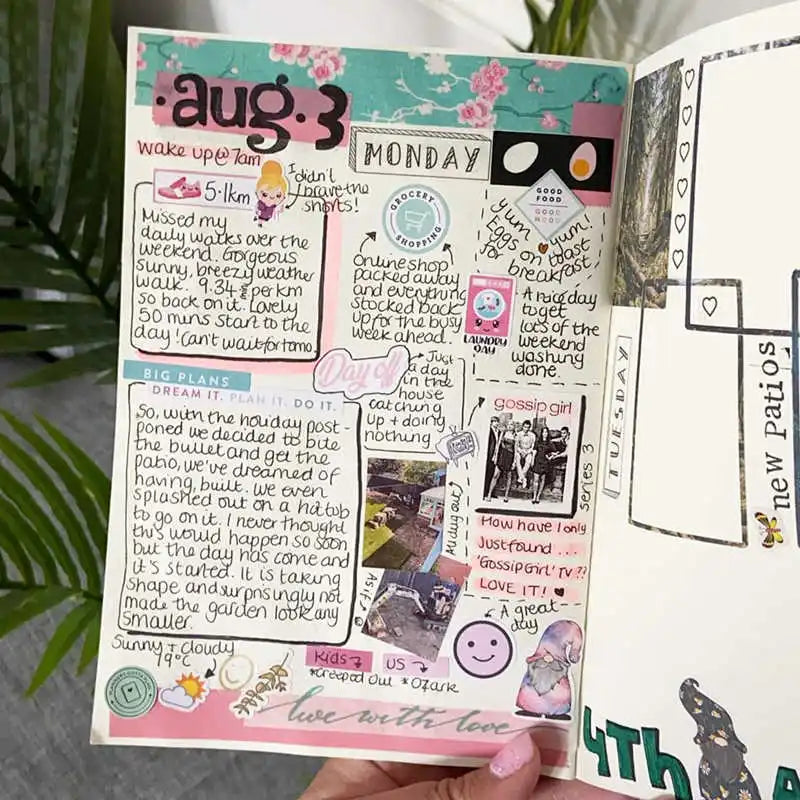 ·aug·3
MONDAY
wake up@7am
5·1km
I didn't
brave the
shorts!
Missed my
daily walks over the
weekend. Gorgeous
sunny, breezy weather
walk. 9.34 per km
so back on it. Lovely
50 mins start to the
day! Can't wait for tomo
GROCERY
SHOPPING
Online shop
packed away
and everything
stocked back
up for the busy
week ahead.
GOOD
FOOD
GOOD
MOOD
Yum, yum!
Eggs on toast
for breakfast
LAUNDRY
DAY
A nice day
to get
lots of the
weekend
washing
done.
Day off
Just
a day
in the
house
catching
up + doing
nothing
BIG PLANS
DREAM IT. PLAN IT. DO IT.
So, with the holiday post-
poned we decided to bite
the bullet and get the
patio, we've dreamed of
having, built. We even
splashed out on a hot tub
to go on it. I never thought
this would happen so soon
but the day has come and
it's started. It is taking
shape and surprisingly not
made the garden look any
smaller.
gossip girl
series 3
How have I only
Just found ...
'Gossip Girl' TV??
LOVE IT!
All dug out
As if!
A great
day
Sunny + cloudy
19°C
Kids
US
*Creeped Out *Ozark
live with love
TUESDAY
new Patios
4TH
A